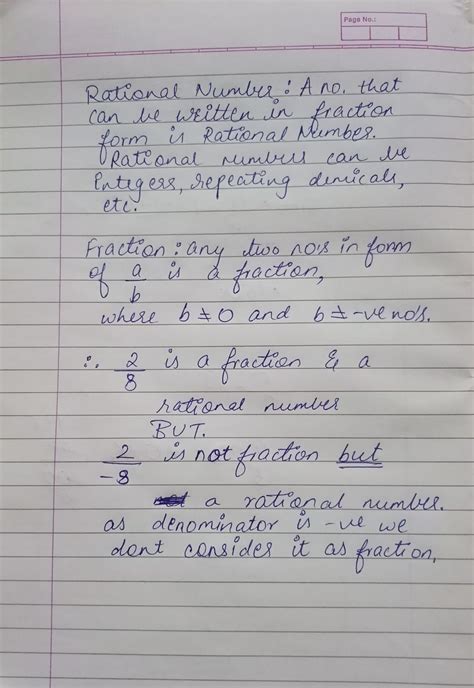 Page No.:
Rational Number : A no. that
can be written in fraction
form is Rational Number.
Rational numbers can be
Integers, repeating demicals,
etc.
Fraction : any two no's in form
of a/b is a fraction,
where b ≠ 0 and b ≠ -ve no's.
∴ 2/8 is a fraction & a
rational number
BUT.
2/-8 is not fraction but
a rational number.
as denominator is -ve we
dont consider it as fraction.